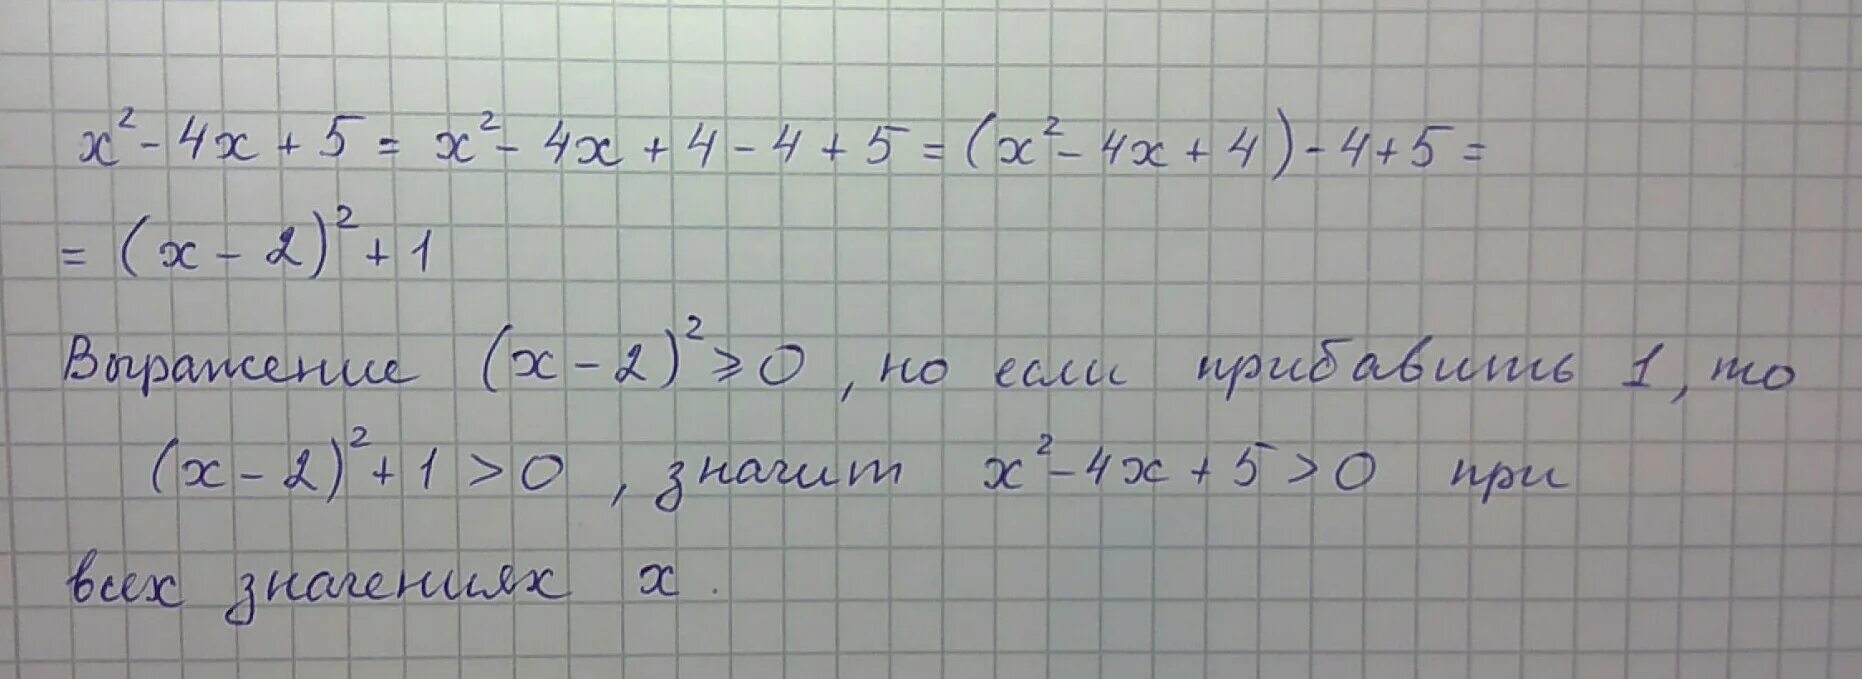 x² - 4x + 5 = x² - 4x + 4 - 4 + 5 = (x² - 4x + 4) - 4 + 5 =
= (x - 2)² + 1
Выражение (x - 2)² ⩾ 0, но если прибавить 1, то
(x - 2)² + 1 > 0, значит x² - 4x + 5 > 0 при
всех значениях x.